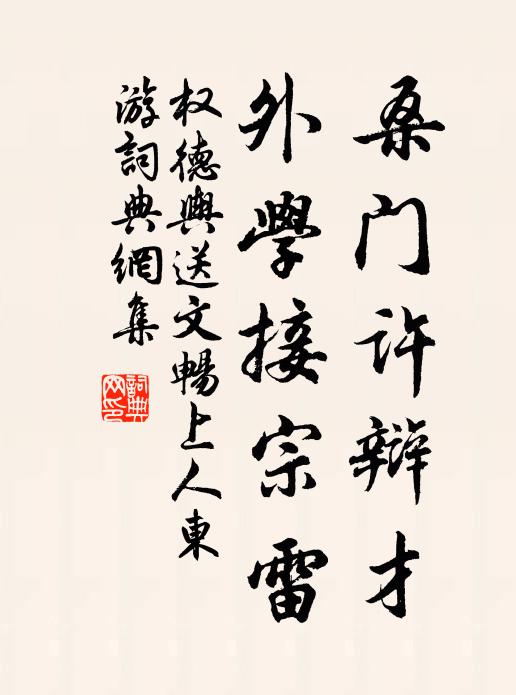 桑门许辩才
外學接宗雷
权德輿送文暢上人東
游詞典網集
詞典网印